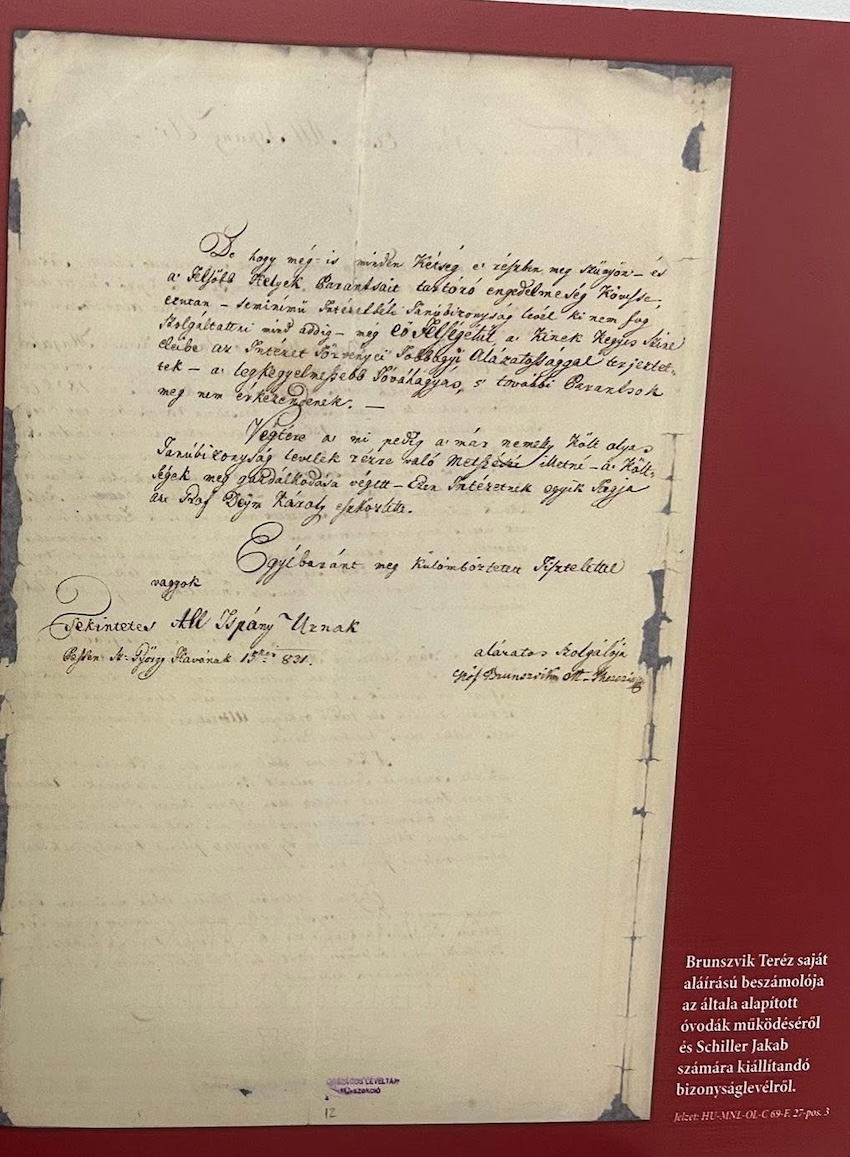 De hogy még-is minden Kétség e' részben meg szünyön – és
a' Felsőbb Helyek Parantsait tartozó engedelmeség Kövesse,
ezután – seminémű Intézetbéli Tanúbizonyság levél ki nem fog
szolgáltattni mind addig – meg eő Felségétűl, a' Kinek Kegyes Színe
eleibe az Intézet Törvényei Jobbágyi Alázatossággal terjeztet-
tek – a' legkegyelmessebb Jóváhagyás, s' további Parantsok
meg nem érkezendenek. —
Végtére a' mi pedig a' már némelly Költ olyas
Tanúbizonyság levelek részre való illetné – a' Költ-
ségek meg gazdálkodása végett – Ezen Intézetnek egyik Tagja
Gróf Deÿm Károly eszközlötte.
Egyébaránt meg külömböztetett Tisztelettel
vagyok
Tekintetes All Ispány Urnak
Pesten Sz: György Havának 15 831.
alázatos Szolgálója
Gróf Brunszvik M. Therezia
ORSZÁGOS LEVÉLTÁR
12
Brunszvik Teréz saját
aláírású beszámolója
az általa alapított
óvodák működéséről
és Schiller Jakab
számára kiállítandó
bizonyságlevélről.
Jelzet: HU-MNL-OL-C 69-F. 27-pos. 3